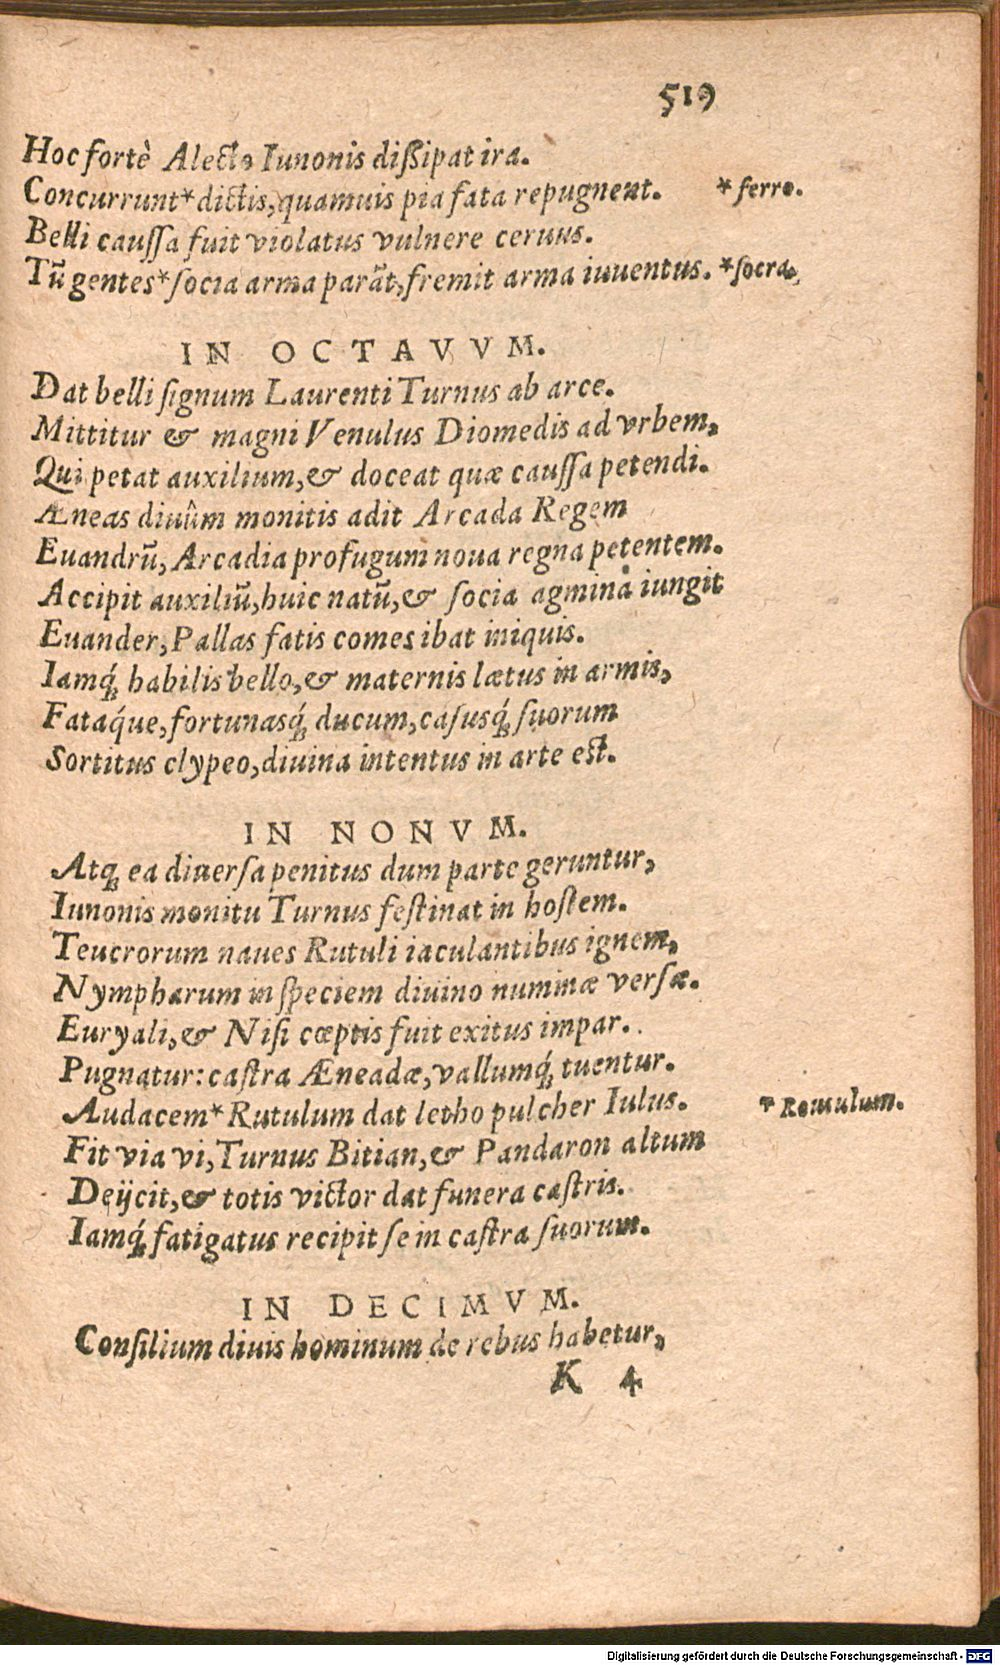 519
Hoc fortè Alecto Iunonis dißipat ira.
Concurrunt* dictis, quamuis pia fata repugnent. * ferro.
Belli cauſſa fuit violatus vulnere ceruus.
Tũ gentes* ſocia arma parãt, fremit arma iuuentus. * ſocra.
IN OCTAVVM.
Dat belli ſignum Laurenti Turnus ab arce.
Mittitur & magni Venulus Diomedis ad vrbem,
Qui petat auxilium, & doceat quæ cauſſa petendi.
Æneas diuûm monitis adit Arcada Regem
Euandrũ, Arcadia profugum noua regna petentem.
Accipit auxiliũ, huic natũ, & ſocia agmina iungit
Euander, Pallas fatis comes ibat iniquis.
Iamq́; habilis bello, & maternis lætus in armis,
Fataq́ue, fortunasq́; ducum, caſusq́; ſuorum
Sortitus clypeo, diuina intentus in arte eſt.
IN NONVM.
Atq; ea diuerſa penitus dum parte geruntur,
Iunonis monitu Turnus feſtinat in hoſtem.
Teucrorum naues Rutuli iaculantibus ignem,
Nympharum in ſpeciem diuino numinæ verſæ.
Euryali, & Niſi cœptis fuit exitus impar.
Pugnatur: caſtra Æneadæ, vallumq́; tuentur.
Audacem* Rutulum dat letho pulcher Iulus. * Remulum.
Fit via vi, Turnus Bitian, & Pandaron altum
Deijcit, & totis victor dat funera caſtris.
Iamq́; fatigatus recipit ſe in caſtra ſuorum.
IN DECIMVM.
Conſilium diuis hominum de rebus habetur,
K 4
Digitalisierung gefördert durch die Deutsche Forschungsgemeinschaft - DFG